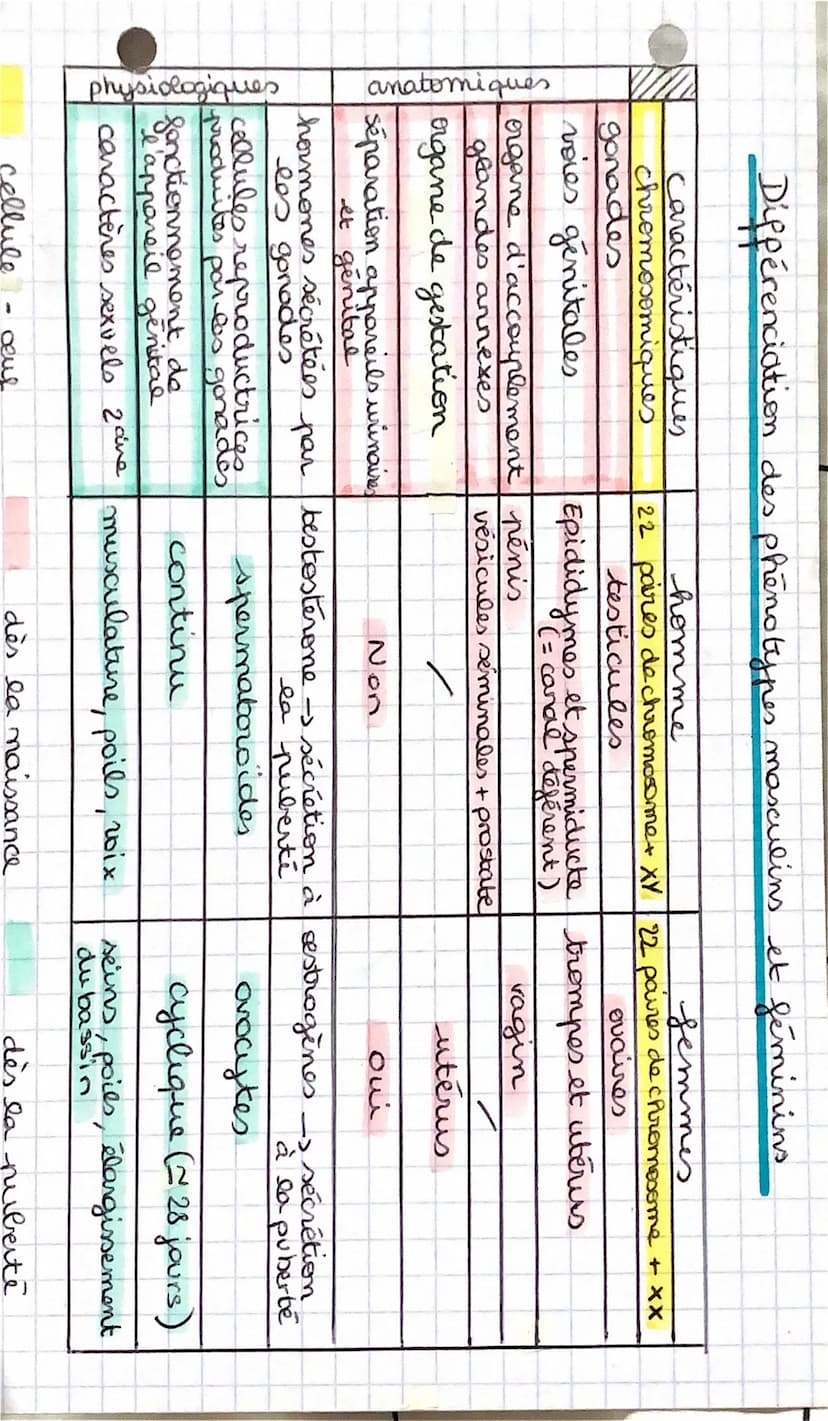 Différenciation des phénotypes masculins et féminins
caractéristiques homme femmes
chromosomiques 22 paires de chromosome + XY 22 paires de chromosome + XX
anatomiques
gonades testicules ovaires
voies génitales Epididymes et spermiducte trompes et utérus
(= canal déférent)
organe d'accouplement pénis vagin
glandes annexes vésicules séminales + prostate /
organe de gestation / utérus
séparation appareils urinaires Non oui
et génital
physiologiques
hormones sécrétées par testostérone → sécrétion à œstrogènes → sécrétion
les gonades la puberté à la puberté
cellules reproductrices spermatozoïdes ovocytes
produites par les gonades
fonctionnement de continu cyclique (≈ 28 jours)
l'appareil génital
caractères sexuels 2aire musculature, poils, voix seins, poils, élargissement
du bassin
cellule - œuf dès la naissance dès la puberté